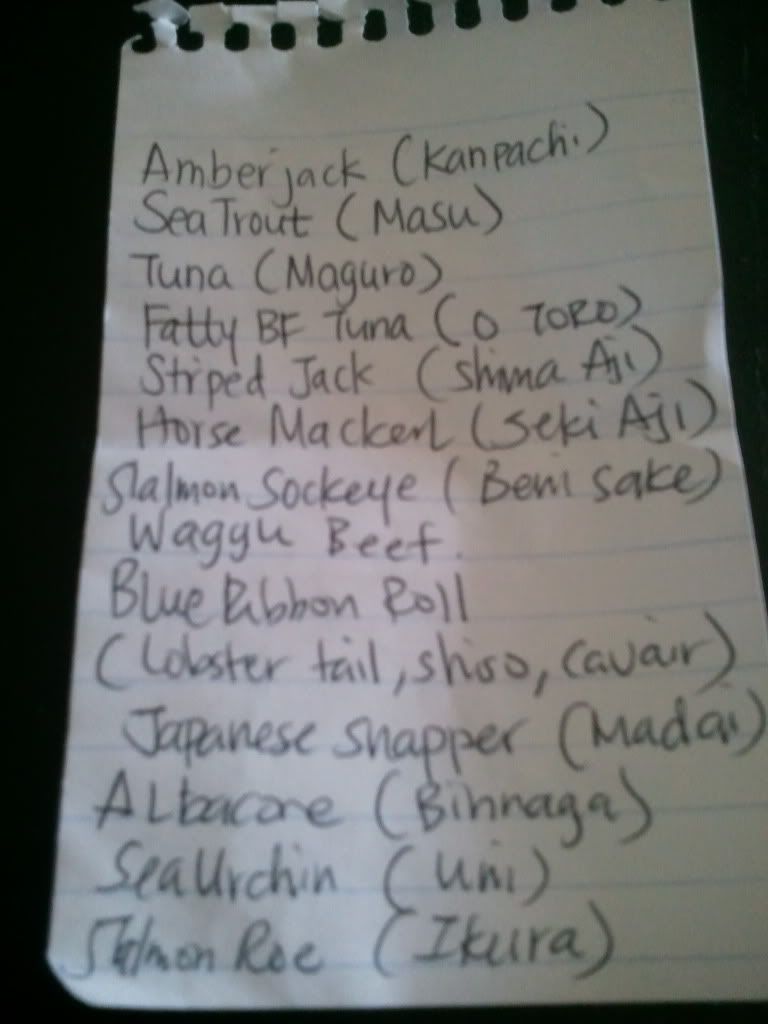 Amberjack (Kanpachi)
Sea Trout (Masu)
Tuna (Maguro)
Fatty BF Tuna (O TORO)
Striped Jack (Shima Aji)
Horse Mackerl (Seki Aji)
Salmon Sockeye (Beni Sake)
Waggu Beef.
Blue Ribbon Roll
(Lobster tail, shiso, Cavair)
Japanese Snapper (Madai)
ALbacore (Binnaga)
Sea Urchin (Uni)
Salmon Roe (Ikura)